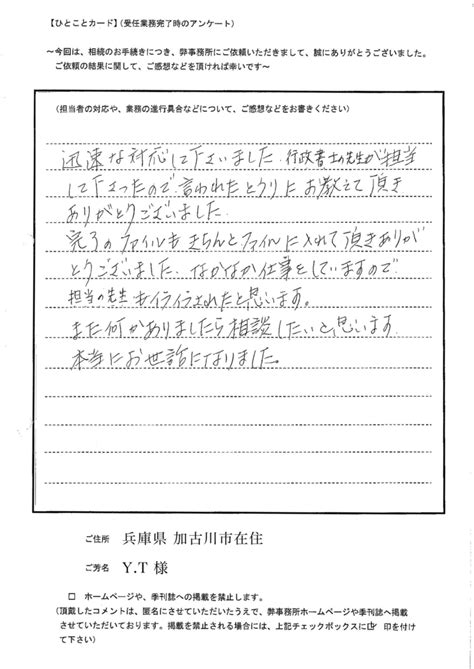 【ひとことカード】(受任業務完了時のアンケート)
～今回は、相続のお手続きにつき、弊事務所にご依頼いただきまして、誠にありがとうございました。
ご依頼の結果に関して、ご感想などを頂ければ幸いです～
(担当者の対応や、業務の進行具合などについて、ご感想などをお書きください)
迅速な対応して下さいました。行政書士の先生が担当
して下さったので、言われたとうりにお教えて頂き
ありがとうございました。
完了のファイルもきちんとファイルに入れて頂きありが
とうございました。なかなか仕事をしていますので、
担当の先生もイライラされたと思います。
また何かありましたら相談したいと思います。
本当にお世話になりました。
ご住所 兵庫県 加古川市在住
ご芳名 Y.T 様
□ ホームページや、季刊誌への掲載を禁止します。
(頂戴したコメントは、匿名にさせていただいたうえで、弊事務所ホームページや季刊誌へ掲載
させていただいております。掲載を禁止される場合には、上記チェックボックスに☑ 印を付け
て下さい)